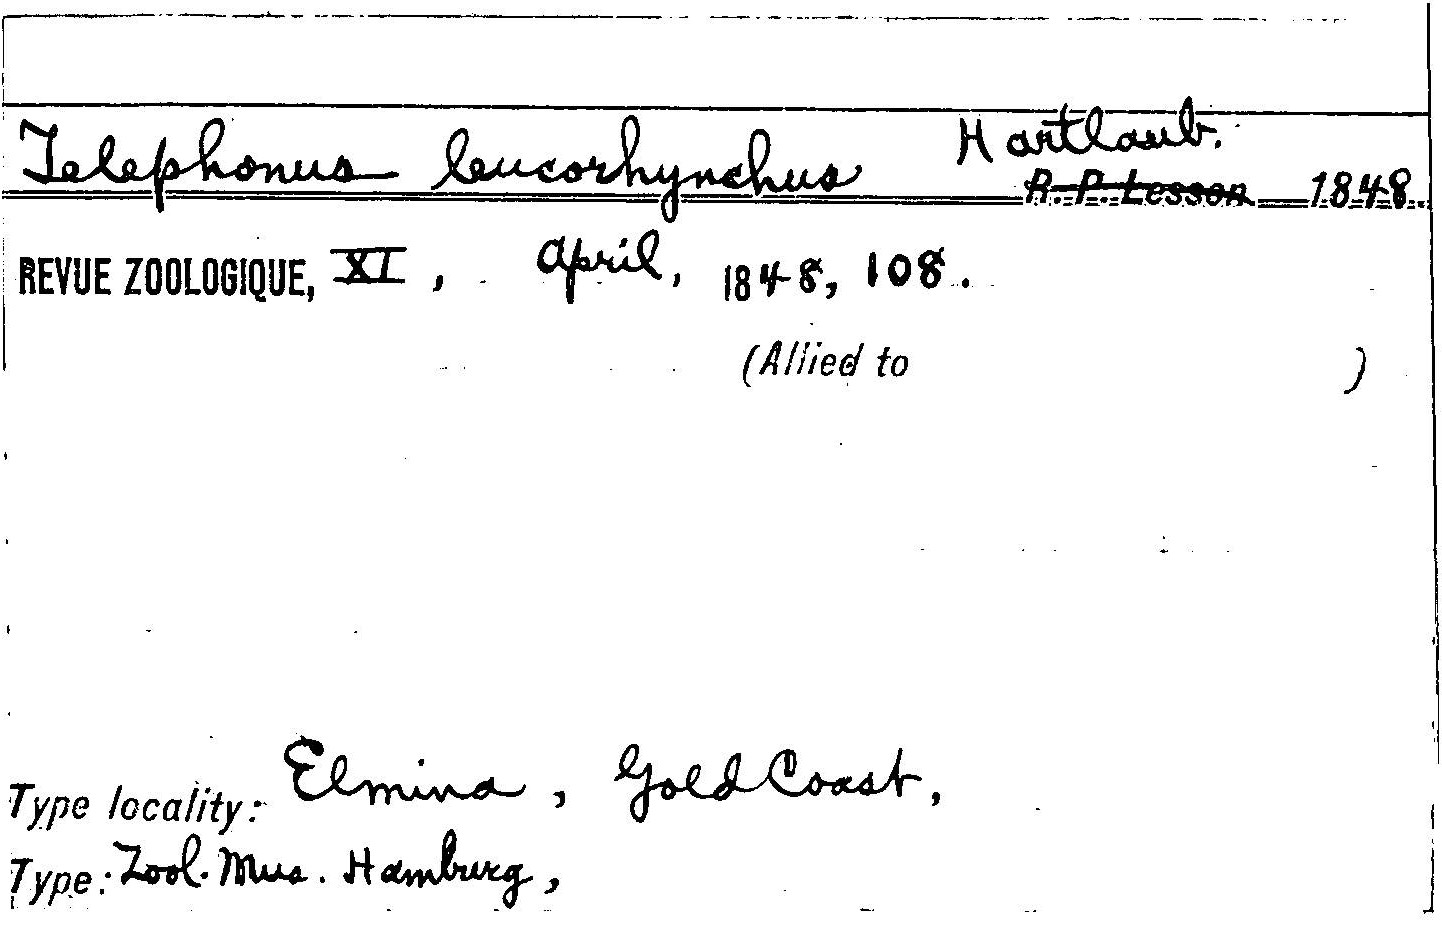 Telephonus leucorhynchus Hartlaub.
R. P. Lesson 1848.
REVUE ZOOLOGIQUE, XI, April, 1848, 108.
(Allied to )
Type locality: Elmina, Gold Coast,
Type: Zool. Mus. Hamburg,